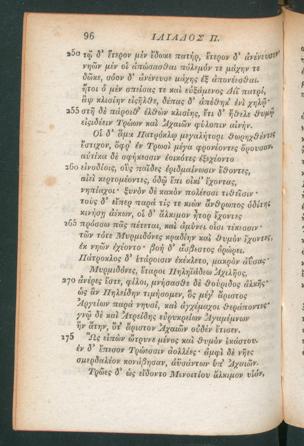 96 ΙΛΙΑΔΟΣ Π.
250 τῷ δ' ἕτερον μὲν ἔδωκε πατὴρ, ἕτερον δ' ἀνένευσεν
νηῶν μέν οἱ ἀπώσασθαι πόλεμόν τε μάχην τε
δῶκε, σόον δ' ἀνένευσε μάχης ἐξ ἀπονέεσθαι.
ἤτοι ὁ μὲν σπείσας τε καὶ εὐξάμενος Διῒ πατρὶ,
ἂψ κλισίην εἰσῆλθε, δέπας δ' ἀπέθηκ' ἐνὶ χηλῷ·
255 στῆ δὲ πάροιθ' ἐλθὼν κλισίης, ἔτι δ' ἤθελε θυμῷ
εἰσιδέειν Τρώων καὶ Ἀχαιῶν φύλοπιν αἰνήν.
Οἱ δ' ἅμα Πατρόκλῳ μεγαλήτορι θωρηχθέντες
ἔστιχον, ὄφρ' ἐν Τρωσὶ μέγα φρονέοντες ὄρουσαν.
αὐτίκα δὲ σφήκεσσιν ἐοικότες ἐξεχέοντο
260 εἰνοδίοις, οὓς παῖδες ἐριδμαίνωσιν ἔθοντες,
αἰεὶ κερτομέοντες, ὁδῷ ἔπι οἰκί' ἔχοντας,
νηπίαχοι· ξυνὸν δὲ κακὸν πολέεσσι τιθεῖσιν·
τοὺς δ' εἴπερ παρά τίς τε κιὼν ἄνθρωπος ὁδίτης
κινήσῃ ἀέκων, οἱ δ' ἄλκιμον ἦτορ ἔχοντες
265 πρόσσω πᾶς πέτεται, καὶ ἀμύνει οἷσι τέκεσσιν·
τῶν τότε Μυρμιδόνες κραδίην καὶ θυμὸν ἔχοντες,
ἐκ νηῶν ἐχέοντο· βοὴ δ' ἄσβεστος ὀρώρει.
Πάτροκλος δ' ἑτάροισιν ἐκέκλετο, μακρὸν ἀΰσας·
Μυρμιδόνες, ἕταροι Πηληϊάδεω Ἀχιλῆος,
270 ἀνέρες ἔστε, φίλοι, μνήσασθε δὲ θούριδος ἀλκῆς·
ὡς ἂν Πηλείδην τιμήσομεν, ὃς μέγ' ἄριστος
Ἀργείων παρὰ νηυσὶ, καὶ ἀγχέμαχοι θεράποντες·
γνῷ δὲ καὶ Ἀτρείδης εὐρυκρείων Ἀγαμέμνων
ἣν ἄτην, ὅτ' ἄριστον Ἀχαιῶν οὐδὲν ἔτισεν.
275 Ὣς εἰπὼν ὤτρυνε μένος καὶ θυμὸν ἑκάστου.
ἐν δ' ἔπεσον Τρώεσσιν ἀολλέες· ἀμφὶ δὲ νῆες
σμερδαλέον κονάβησαν, ἀϋσάντων ὑπ' Ἀχαιῶν.
Τρῶες δ' ὡς εἴδοντο Μενοιτίου ἄλκιμον υἱὸν,